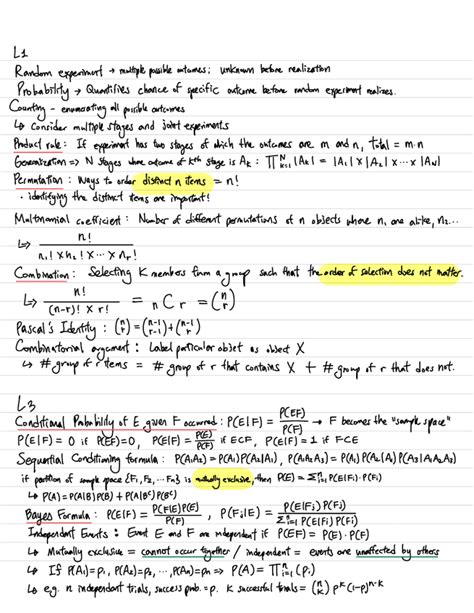 L1
Random experiment → multiple possible outcomes; unknown before realization
Probability → Quantifies chance of specific outcome before random experiment realizes.
Counting - enumerating all possible outcomes
↳ Consider multiple stages and joint experiments
Product rule: If experiment has two stages of which the outcomes are m and n, total = m·n
Generalization => N stages where outcome of kth stage is Ak : ∏ᴺₖ₌₁|Ak| = |A1| x |A2| x ... x |AN|
Permutation: Ways to order distinct n items = n!
· identifying the distinct items are important!
Multinomial coefficient: Number of different permutations of n objects where n, are alike, n2...
↳ n! / n1! x n2! x ... x nr!
Combination: Selecting K members from a group such that the order of selection does not matter.
↳ n! / (n-r)! x r! = nCr = (n r)
Pascal's Identity: (n r) = (n-1 r-1) + (n-1 r)
Combinatorial argument: Label particular object as object X
↳ # group of r items = # group of r that contains X + # group of r that does not.
L3
Conditional Probability of E given F occurred: P(E|F) = P(EF)/P(F) → F becomes the "sample space"
P(E|F) = 0 if P(EF)=0, P(E|F) = P(E)/P(F) if E⊂F, P(E|F) = 1 if F⊂E
Sequential Conditioning formula: P(A1A2) = P(A1)P(A2|A1), P(A1A2A3) = P(A1)P(A2|A1)P(A3|A1A2)
if partition of sample space {F1, F2, ... Fn} is mutually exclusive, then P(E) = Σⁿᵢ₌₁ P(E|Fi)·P(Fi)
↳ P(A) = P(A|B)P(B) + P(A|Bᶜ)P(Bᶜ)
Bayes Formula: P(E|F) = P(F|E)P(E)/P(F), P(Fj|E) = P(E|Fj)P(Fj)/Σⁿᵢ₌₁ P(E|Fi)P(Fi)
Independent Events: Event E and F are independent if P(EF) = P(E)·P(F)
↳ Mutually exclusive = cannot occur together / independent = events are unaffected by others
↳ If P(A1)=p1, P(A2)=p2, ..., P(An)=pn => P(A) = ∏ⁿᵢ₌₁(pi)
↳ e.g. n independent trials, success prob. = p. K successful trials = (n k) pᵏ(1-p)ⁿ⁻ᵏ